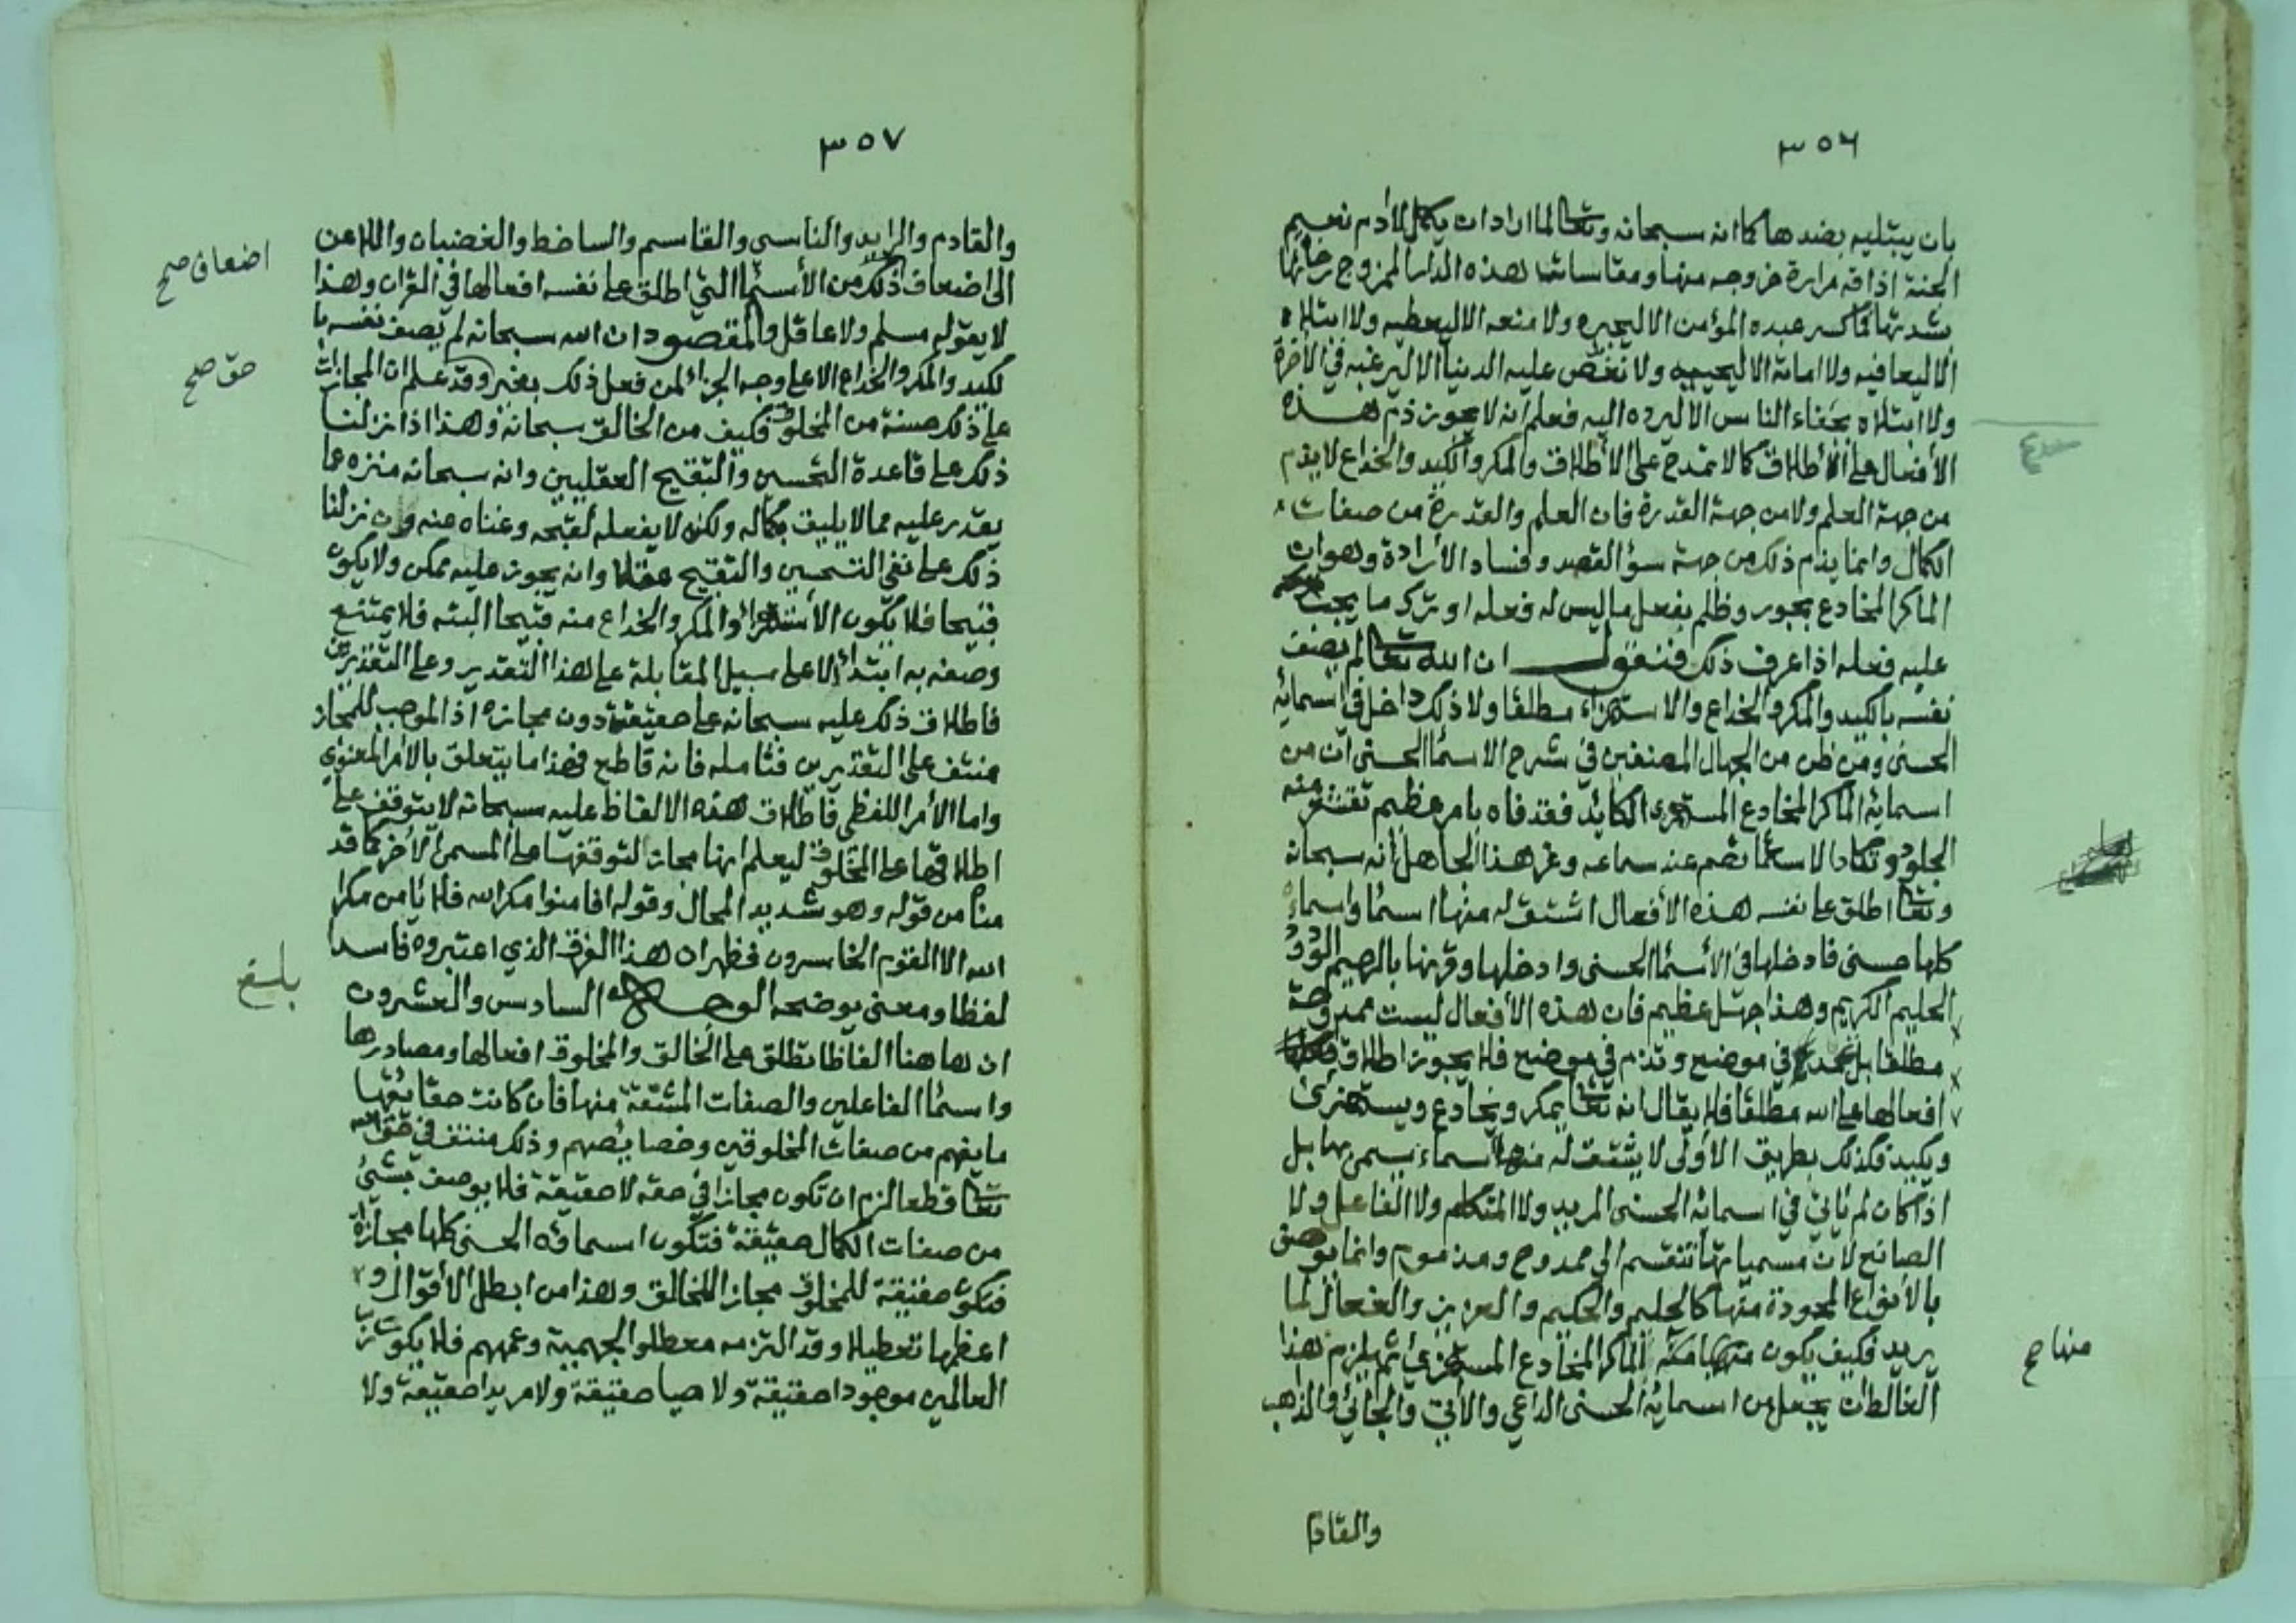 ٣٥٦
بان يبتليه بضدها كما انه سبحانه وتعالى لما اراد ان يكمل لادم نعيم
الجنة اذاقه مرارة خروجه منها ومقاسات هذه الدار الممزوج رخائها
بشدتها فما كسر عبده المؤمن الا ليجبره ولا منعه الا ليعطيه ولا ابتلاه
الا ليعافيه ولا اماته الا ليحييه ولا نغص عليه الدنيا الا ليرغبه في الآخرة
ولا ابتلاه بجفاء الناس الا ليرده اليه فعلم انه لا يجوز ذم هذه
الأفعال على الأطلاق كما لا تمدح على الاطلاق والمكر والكيد والخداع لا يذم
من جهة العلم ولا من جهة القدرة فان العلم والقدرة من صفات
الكمال وانما يذم ذلك من جهة سؤ القصد وفساد الأرادة وهو ان
الماكر المخادع يجور وظلم بفعل ما ليس له فعله او ترك ما يجب
عليه فعله اذا عرف ذلك فنقول ان الله تعالى لم يصف
نفسه بالكيد والمكر والخداع والاستهزاء مطلقا ولا ذلك داخل في اسمائه
الحسنى ومن ظن من الجهال المصنفين في شرح الاسما الحسنى ان من
اسمائه الماكر المخادع المستهزى الكايد فقد فاه بامر عظيم تقشعر منه
الجلود وتكاد الاسماع تصم عند سماعه وغر هذا الجاهل أنه سبحانه
وتعالى اطلق على نفسه هذه الأفعال اشتق له منها اسما واسماءه
كلها حسنى فادخلها في الأسما الحسنى وادخلها وقرنها بالرحيم الودود
الحليم الكريم وهذا جهل عظيم فان هذه الأفعال ليست ممدوحة
مطلقا بل تمدح في موضع وتذم في موضع فلا يجوز اطلاق
افعالها على الله مطلقا فلا يقال انه تعالى يمكر ويخادع ويستهزئ
ويكيد فكذلك بطريق الأولى لا يشتق له منها اسماء يسمى بها بل
اذا كان لم يأتي في اسمائه الحسنى المريد ولا المتكلم ولا الفاعل ولا
الصانع لان مسمياتها تنقسم الى ممدوح ومذموم وانما يوصف
بالأنواع المحمودة منها كالحليم والحكيم والعزيز والفعال لما
يريد فكيف يكون الماكر المخادع المستهزئ ثم يلزم هذا
الغالط ان يجعل من اسمائه الحسنى الداعي والأتي والجائي والذاهب
منها صح
والقادم
٣٥٧
والقادم والرايد والناسي والقاسم والساخط والغضبان واللاعن
الى اضعاف ذلك من الأسما التي اطلق على نفسه افعالها في القران وهذا
لا يقوله مسلم ولا عاقل والمقصود ان الله سبحانه لم يصف نفسه با
لكيد والمكر والخداع الا على وجه الجزا لمن فعل ذلك بغير وقد علم ان المجازات
على ذلك حسنة من المخلوق فكيف من الخالق سبحانه وهذا اذا نزلنا
ذلك على قاعدة التحسين والتقبيح العقليين وانه سبحانه منزه عما
يقدر عليه مما لا يليق بكماله ولكنه لا يفعله لقبحه وغناه عنه وان نزلنا
ذلك على نفي التحسين والتقبيح عقلا وانه يجوز عليه ممكن ولا يكون
قبيحا فلا يكون الأستهزاء والمكر والخداع منه قبيحا البته فلا يمتنع
وصفه به ابتداء لا على سبيل المقابلة على هذا التقدير وعلى التقديرين
فاطلاق ذلك عليه سبحانه على حقيقته دون مجازه اذ الموجب للمجاز
منتف على التقديرين فتامله فانه قاطع فهذا ما يتعلق بالأمر المعنوي
واما الأمر اللفظي فاطلاق هذه الالفاظ عليه سبحانه لا يتوقف على
اطلاقها على المخلوق ليعلم انها مجاز لتوقفها على المسمى الآخر كما قد
منا من قوله وهو شديد المحال وقوله افامنوا مكر الله فلا يأمن مكر
الله الا القوم الخاسرون فظهر ان هذا الفرق الذي اعتبروه فاسد
لفظا ومعنى يوضحه الوجه السادس والعشرون
ان هاهنا الفاظا تطلق على الخالق والمخلوق افعالها ومصادرها
واسما الفاعلين والصفات المشتقة منها فان كانت حقائقها
ما يفهم من صفات المخلوقين وخصائصهم وذلك منتف في حق الله
تعالى قطعا لزم ان تكون مجازا في حقه لا حقيقة فلا يوصف بشئ
من صفات الكمال حقيقة فتكون اسمائه الحسنى كلها مجازا
فتكون حقيقة للمخلوق مجازا للخالق وهذا من ابطل الأقوال و
اعظمها تعطيلا وقد التزمه معطلو الجهمية وعمهم فلا يكون رب
العالمين موجودا حقيقة ولا حيا حقيقة ولا مريدا حقيقة ولا
اضعاف صح
حق صح
بلغ